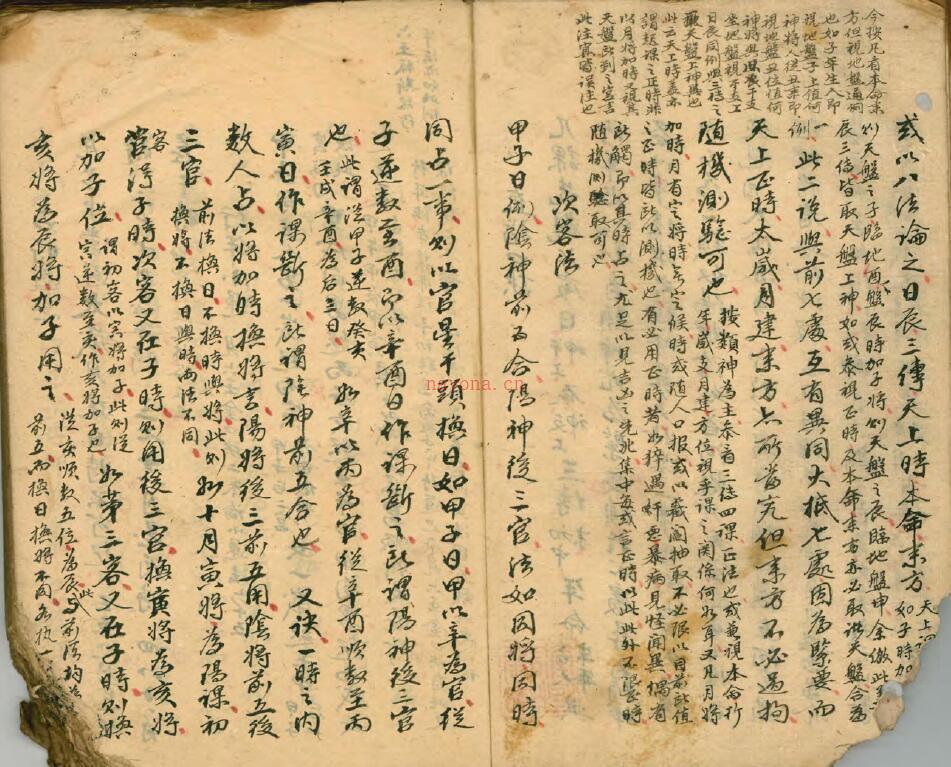 今按凡看本命來
方但視地盤
也如子年生人即
視地盤子上值何
神將人從丑來即
視地盤丑位值何
神將與干支
坐地盤視干支上
日辰同例與三傳之
天盤上神無也
此云天上時
謂起課之正時
以月將加時又視其
天盤所到之宮
此注寅時誤注也
或以八法論之日辰三傳天上時本命來方
天上
如子時加
則天盤之子臨地酉盤辰時加子將則天盤之辰臨地盤申余倣此
辰三傳皆取天盤上神如或泰視正時及本命來方亦必取決天盤合為
例
一此二說與前七處互有異同大抵七處固為緊要而
天上正時太歲月建來方亦所當究但來方不必過拘
隨機測驗可也
按類神為主泰看三傳四課正法也或兼視本命行
年歲支月建方位視乎課之關係何如耳又凡月將
加時月有定將時無定候時或隨人口報或以籤閹抽取不必限以目前所值
之正時時皆所以測機也有必用正時者如猝遇奸惡暴病見怪聞異偶有
所觸即以其時占之尤足以見吉凶之先兆集中每或言正時以此此外不限時
隨機測驗取可也
次客法
甲子日例陰神前五合陽神後三官法如同將同時
同占一事則以官星干頭換日如甲子日甲以辛為官從
子逆數至酉即以辛酉日作課斷之此謂陽神後三官
也
此謂從甲子逆數癸亥
壬戌辛酉為后三日
如辛以丙為官從辛酉順數至丙
寅日作課斷之此謂陰神前五合也
又訣一時之內
數人占以將加時換將言陽將後三前五用陰將前五後
三官
前法換日不換時與將此則
換將不換日與時兩法不同
如十月寅將為陽課初
客
官得子時次客又在子時則用後三宮換寅將為亥將
以加子位
謂初客以寅將加子此則從
寅逆數至亥作亥將加子也
如第三客又在子時則換
亥將為辰將加子用之
從亥順數五位為辰此與前法均為
前五而換日換將不同各執一